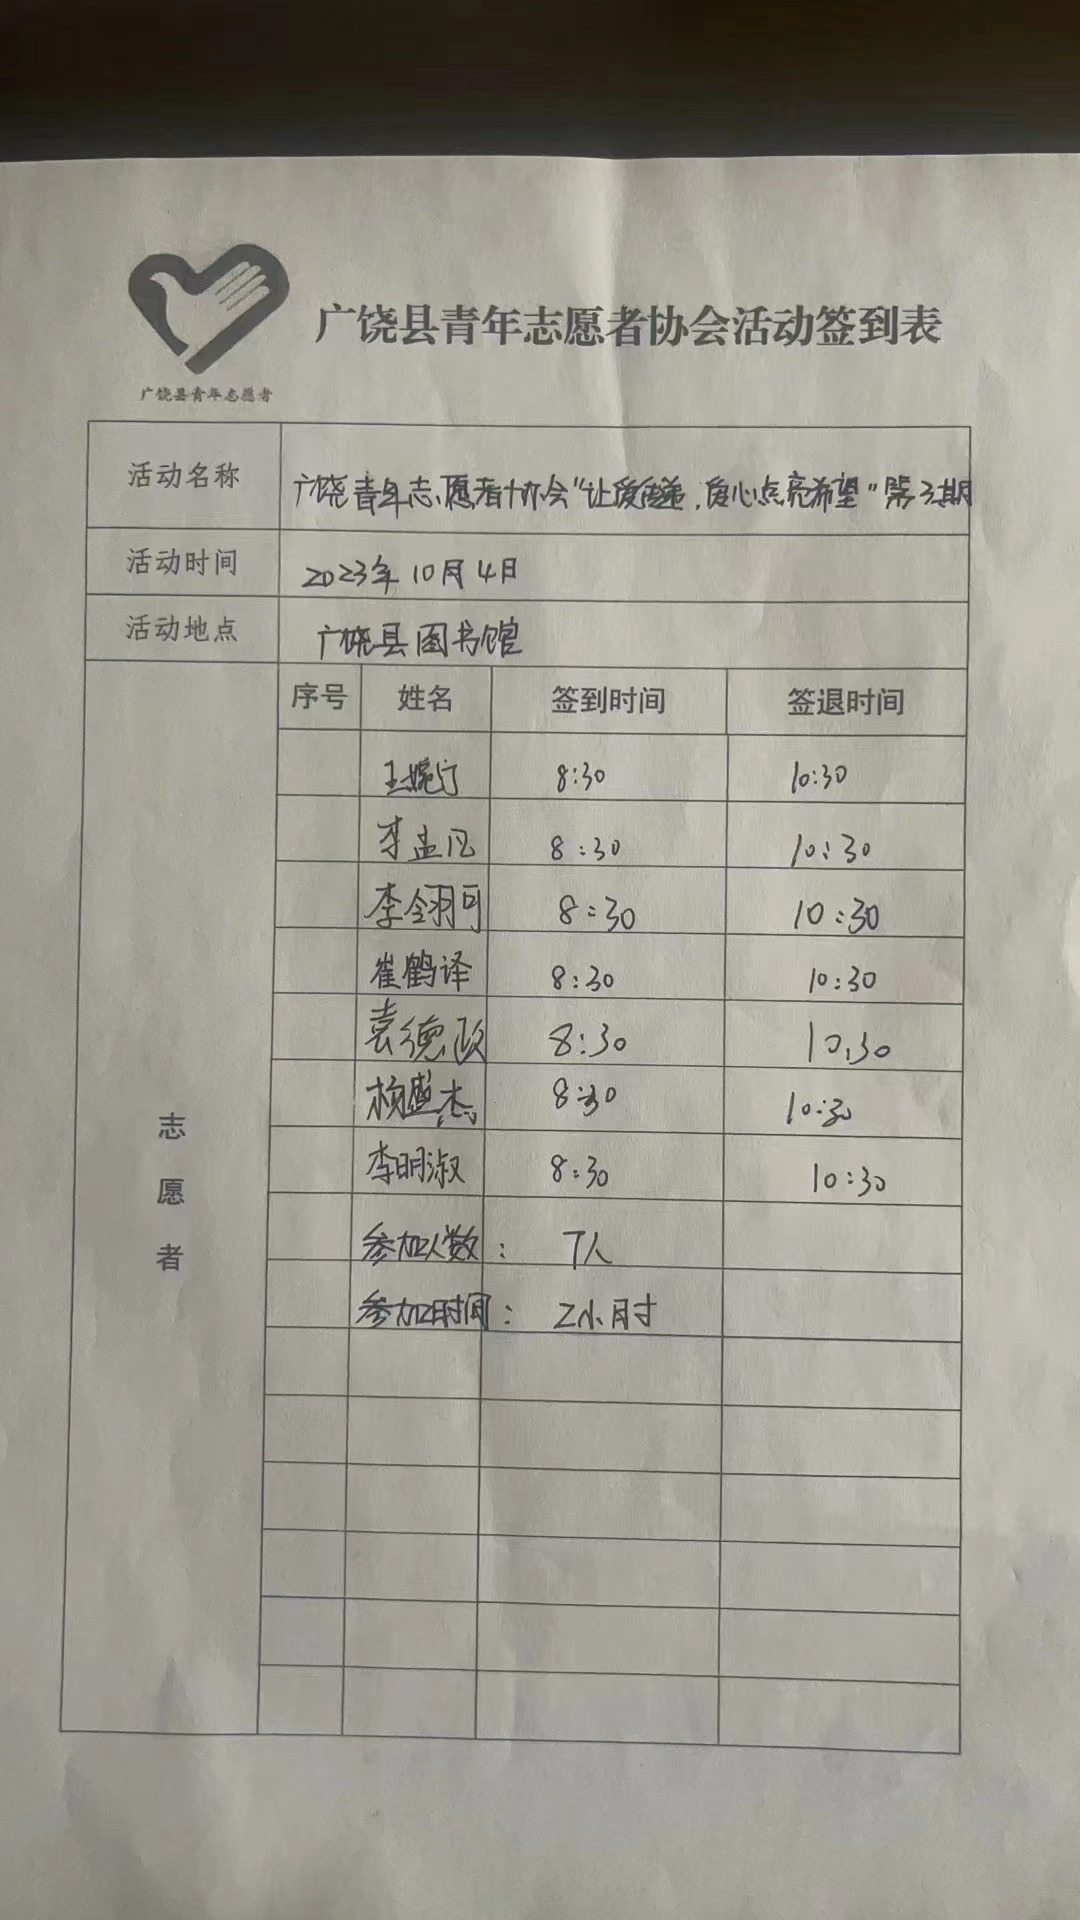 广饶县青年志愿者协会活动签到表
广饶县青年志愿者
活动名称 广饶青年志愿者协会“让爱传递，爱心点亮希望”第3期
活动时间 2023年10月4日
活动地点 广饶县图书馆
序号 姓名 签到时间 签退时间
王婉宁 8:30 10:30
李孟凡 8:30 10:30
李翎可 8:30 10:30
崔鹤译 8:30 10:30
袁德政 8:30 10:30
杨盛杰 8:30 10:30
李明淑 8:30 10:30
参加人数： 7人
参加时间： 2小时
志愿者